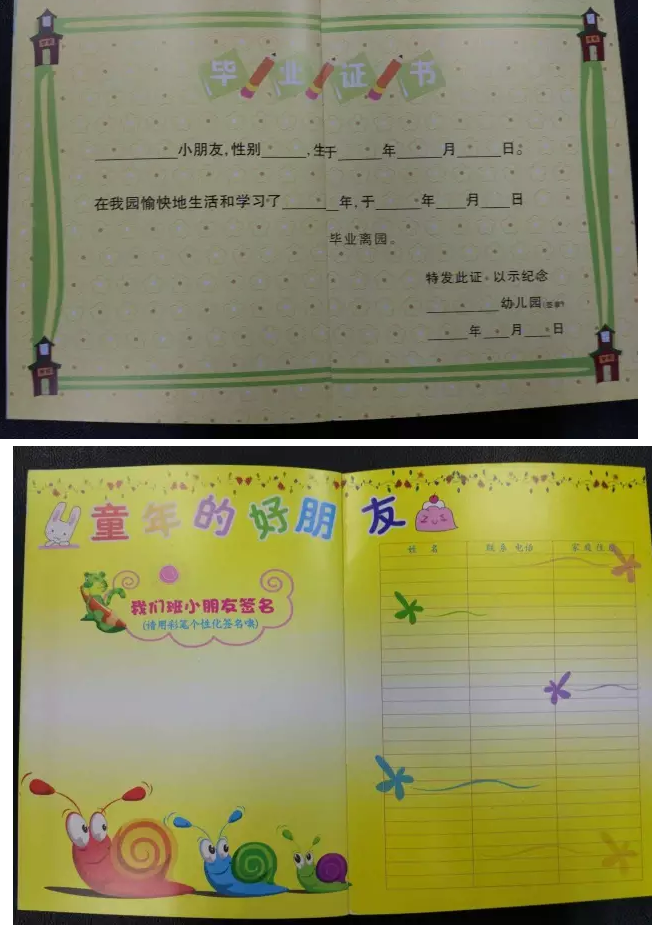 毕业证书
________小朋友,性别____,生于____年____月____日。
在我园愉快地生活和学习了_____年,于____年___月___日
毕业离园。
特发此证 以示纪念
_______幼儿园(签章)
____年___月___日
童年的好朋友
我们班小朋友签名
(请用彩笔个性化签名噢)
姓 名 联系电话 家庭住址